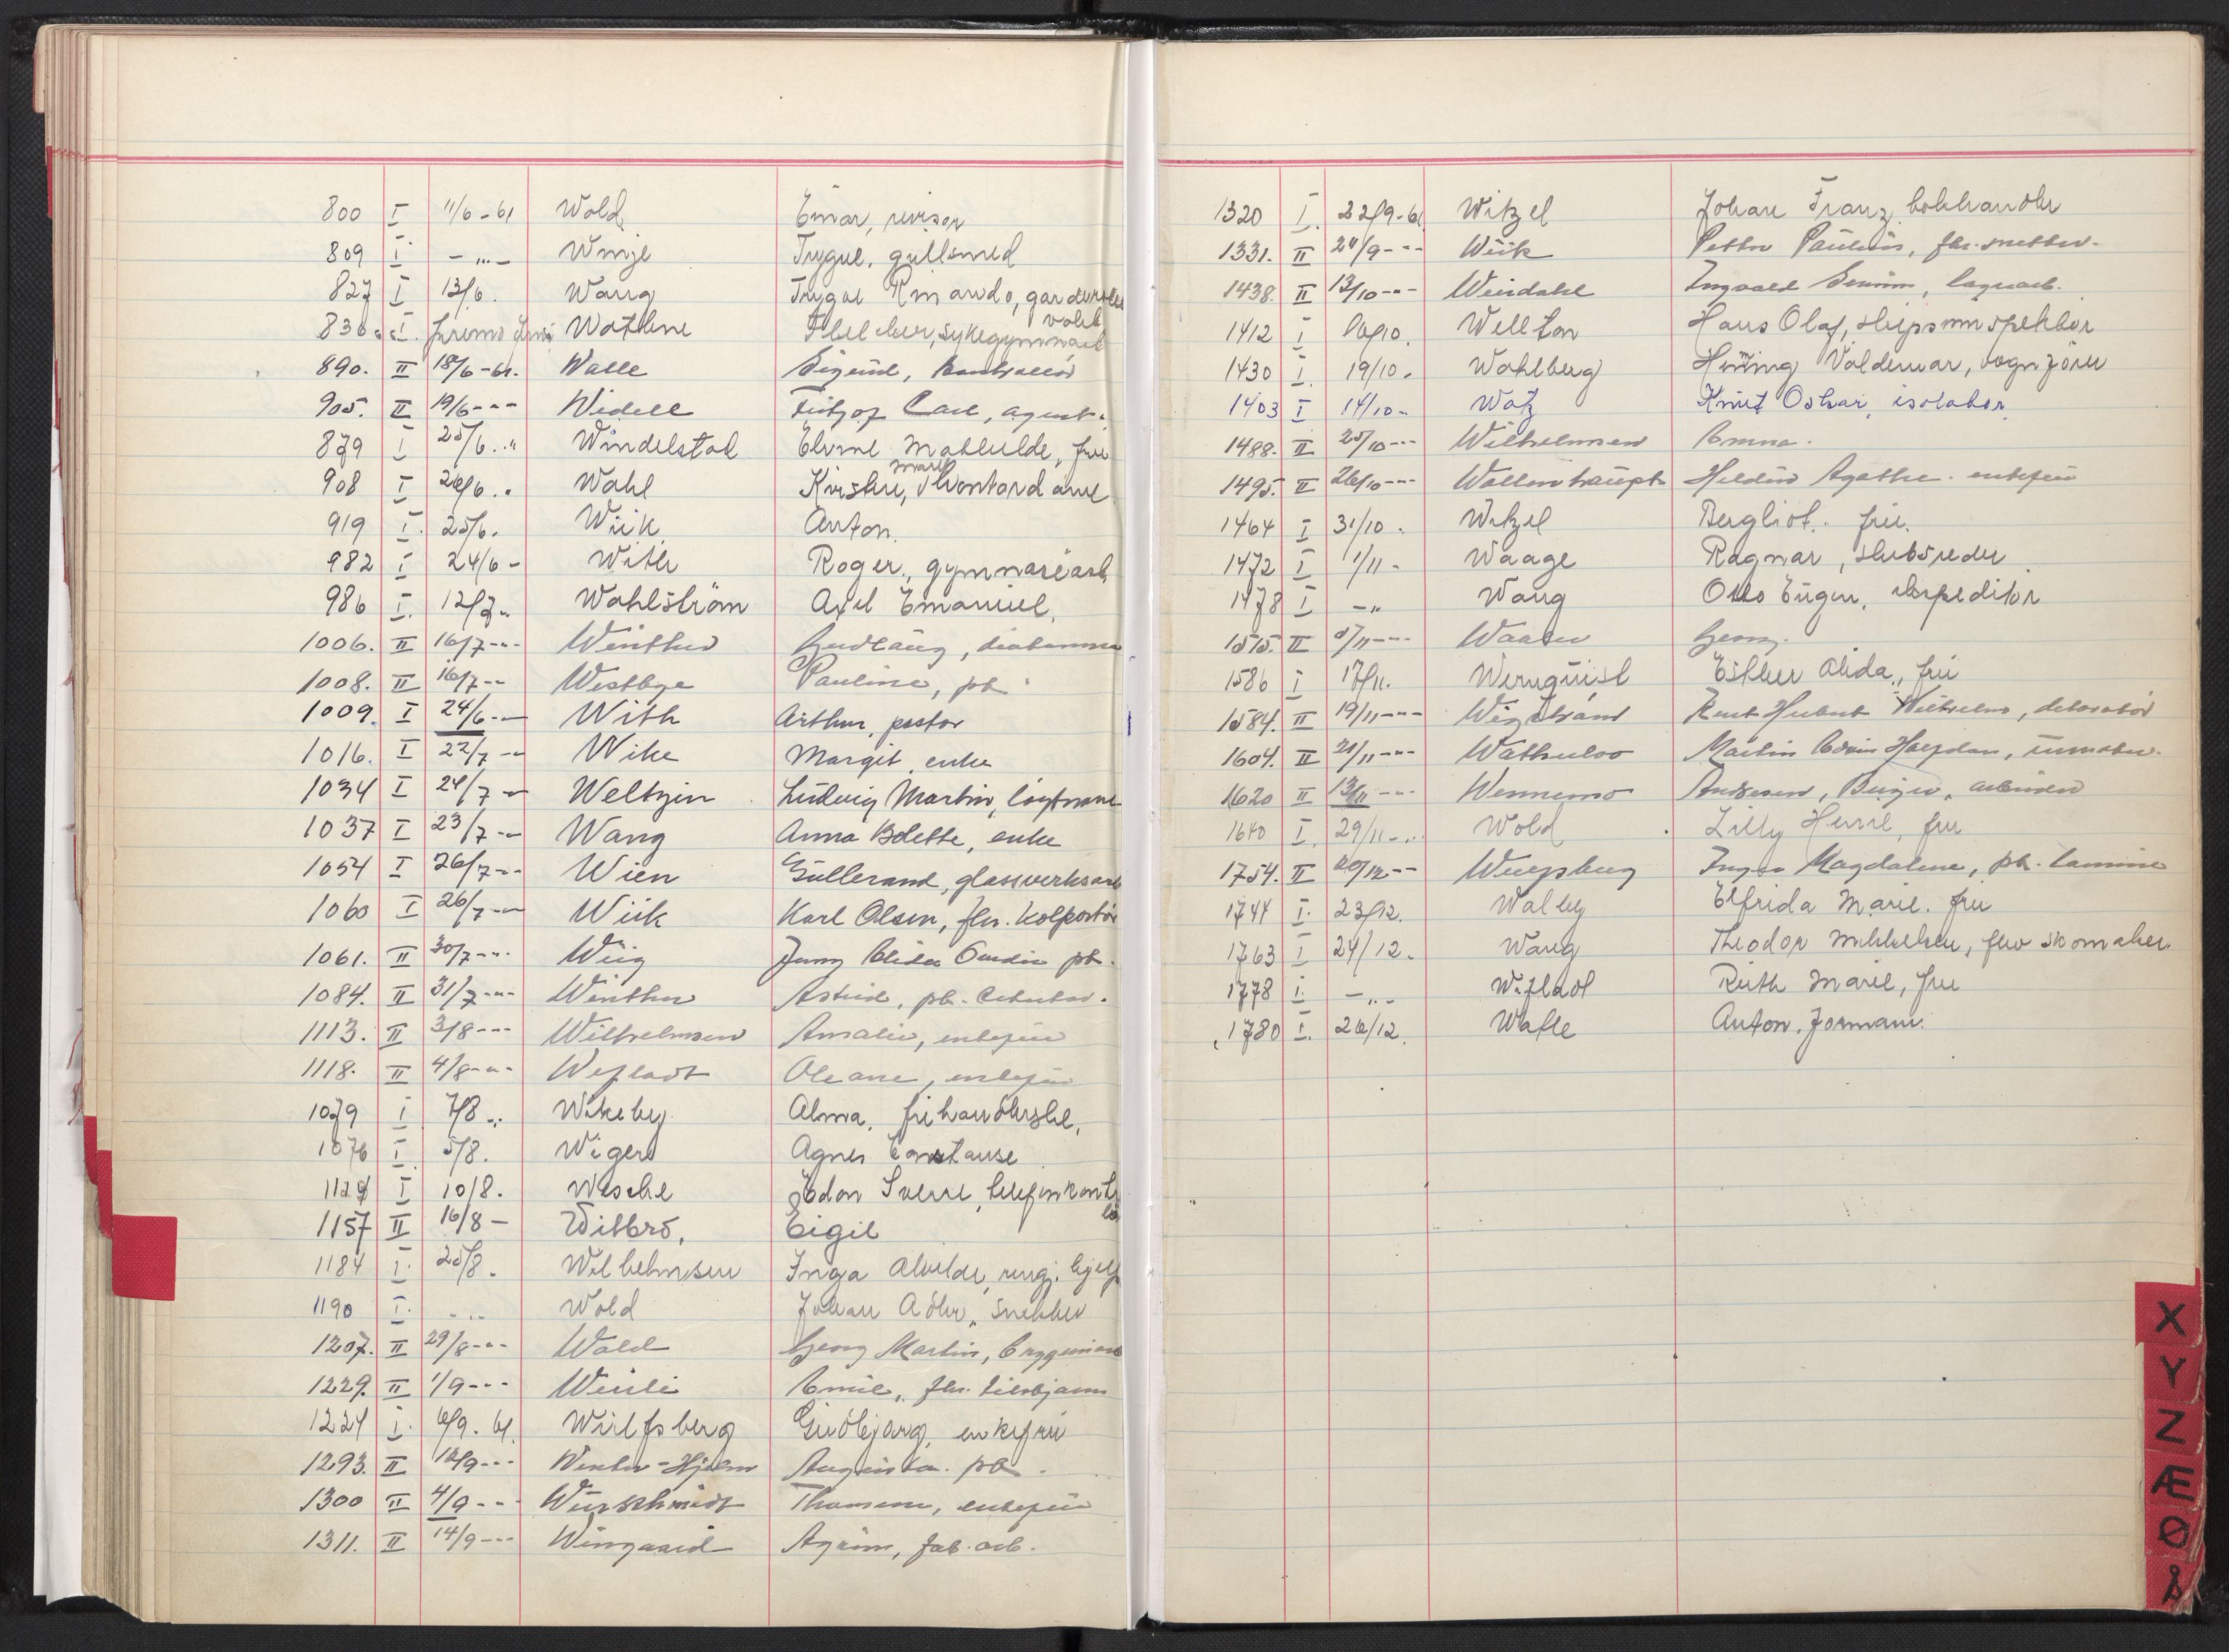 800 I 11/6-61 Wold Einar, revisor
809 I - " - Winje Trygve, gullsmed
827 I 13/6. Wang Trygve
830 I. Wathne sykegymnast
890. II 18/6-61. Walle Sigurd, kontrollør
905. II 19/6 - " - Widell Fritjof Carl, agent.
879 I 25/6 . " Windelstad Mathilde, frue
908 I 26/6 . " Wahl Kirsten, Marie kontordame
919 I. 25/6. Wiik Anton.
982 I 24/6 - With Roger., gymnasiearb.
986 I. 12/7 " Wahlström Axel Emanuel.
1006. II 16/7 - " - Winther Gudlaug, diakonisse
1008. II 16/7 - " Westbye Pauline, pb
1009. I 24/6 - " With Arthur, pastor
1016. I 22/7 - " Wike Margit, enke
1034 I 24/7 - " Weltzin Ludvig Martin, løytnant
1037 I 23/7 - " Wang Anna Bolette, enke
1054 I 26/7 - " Wien Gullerand, glassverksarb
1060 I 26/7 - " Wiik Karl Olsen, fhv. kolportør
1061. II 30/7 - " - Wiig Jenny Alida pb.
1084. II 31/7 - " - Winther Astrid, pb.
1113. II 3/8 - " - Wilhelmsen Amalie, enkefru
1118. II 4/8 - " - Wefladt Oleane, enkefru
1079 I 7/8 . " Wikeby Alma, fru
1076 I. 5/8. Wiger Agnes Constanse
1124 I 10/8. Wesche Sverre, telefonkontr
1157 II 16/8 - Witbro, Eigil
1184 I. 25/8. Wilhelmsen Inga Alvilde, rengj. hjelp
1190 I. - " - Wold Johan Adler, snekker
1207. II 29/8 - " - Wold Georg Martin, bryggeriarb
1229. II 1/9 - " - Emil, fhv.
1224 I. 6/9. 61. Wulfsberg Gudbjørg, enkefru
1293. II 12/9 - " - Winter-Hjelm Augusta. pb.
1300 II 4/9 - " - Würschmidt Thomine, enkefru
1311. II 14/9 - " - Wingaard Agnor, fab. arb.
1320 I. 22/9-61 Witzel Johan Franz, bokhandler
1331. II 24/9 - " - Wiik Petter Paulius, fhv. snekker.
1438. II 13/10 - " - Weirdahl Ingvald lagerarb.
1412 I 10. Wellton Hans Olaf, skipsinspektør
1430 I. 19/10. Wahlberg Henning Valdemar, vognfører
1403 I 14/10 - Watz Knut Oskar, isolatør.
1488. II 25/10 - " - Wilhelmsen Emma.
1495. II 26/10 - " - Wallenhaupt Heldine Agathe. enkefru
1464 I 31/10. Witzel Bergliot. frue.
1472 I 1/11 - Waage Ragnar, skibsreder
1478 I - " Wang Otto Eugen, ekspeditør
1515. II /11 - " - Waaler Georg.
1586 I 17/11. Wernquist Esther Alida., fru
1584. II 19/11 - " - Wigstrand Hubert Wilhelm, dekoratør
1604. II 21/11 - " - Watterloo Martin Edvin Halfdan, urmaker.
1620 II 13/11 - " - Wennemo Andresen, Birger,
1640 I. 29/11 - .. Wold Lilly fru
1754. II 20/12 - " Wuepsberg Magdalene, pb.
1744 I. 23/12. Walby Elfrida Marie. fru
1763 I 24/12. Wang Theodor Mikkelsen, fhv skomaker.
1778 I - " - Wifladt Ruth Marie, fru
1780 I. 26/12. Walle Anton. formann.
X
Y
Z
Æ
Ø
Å